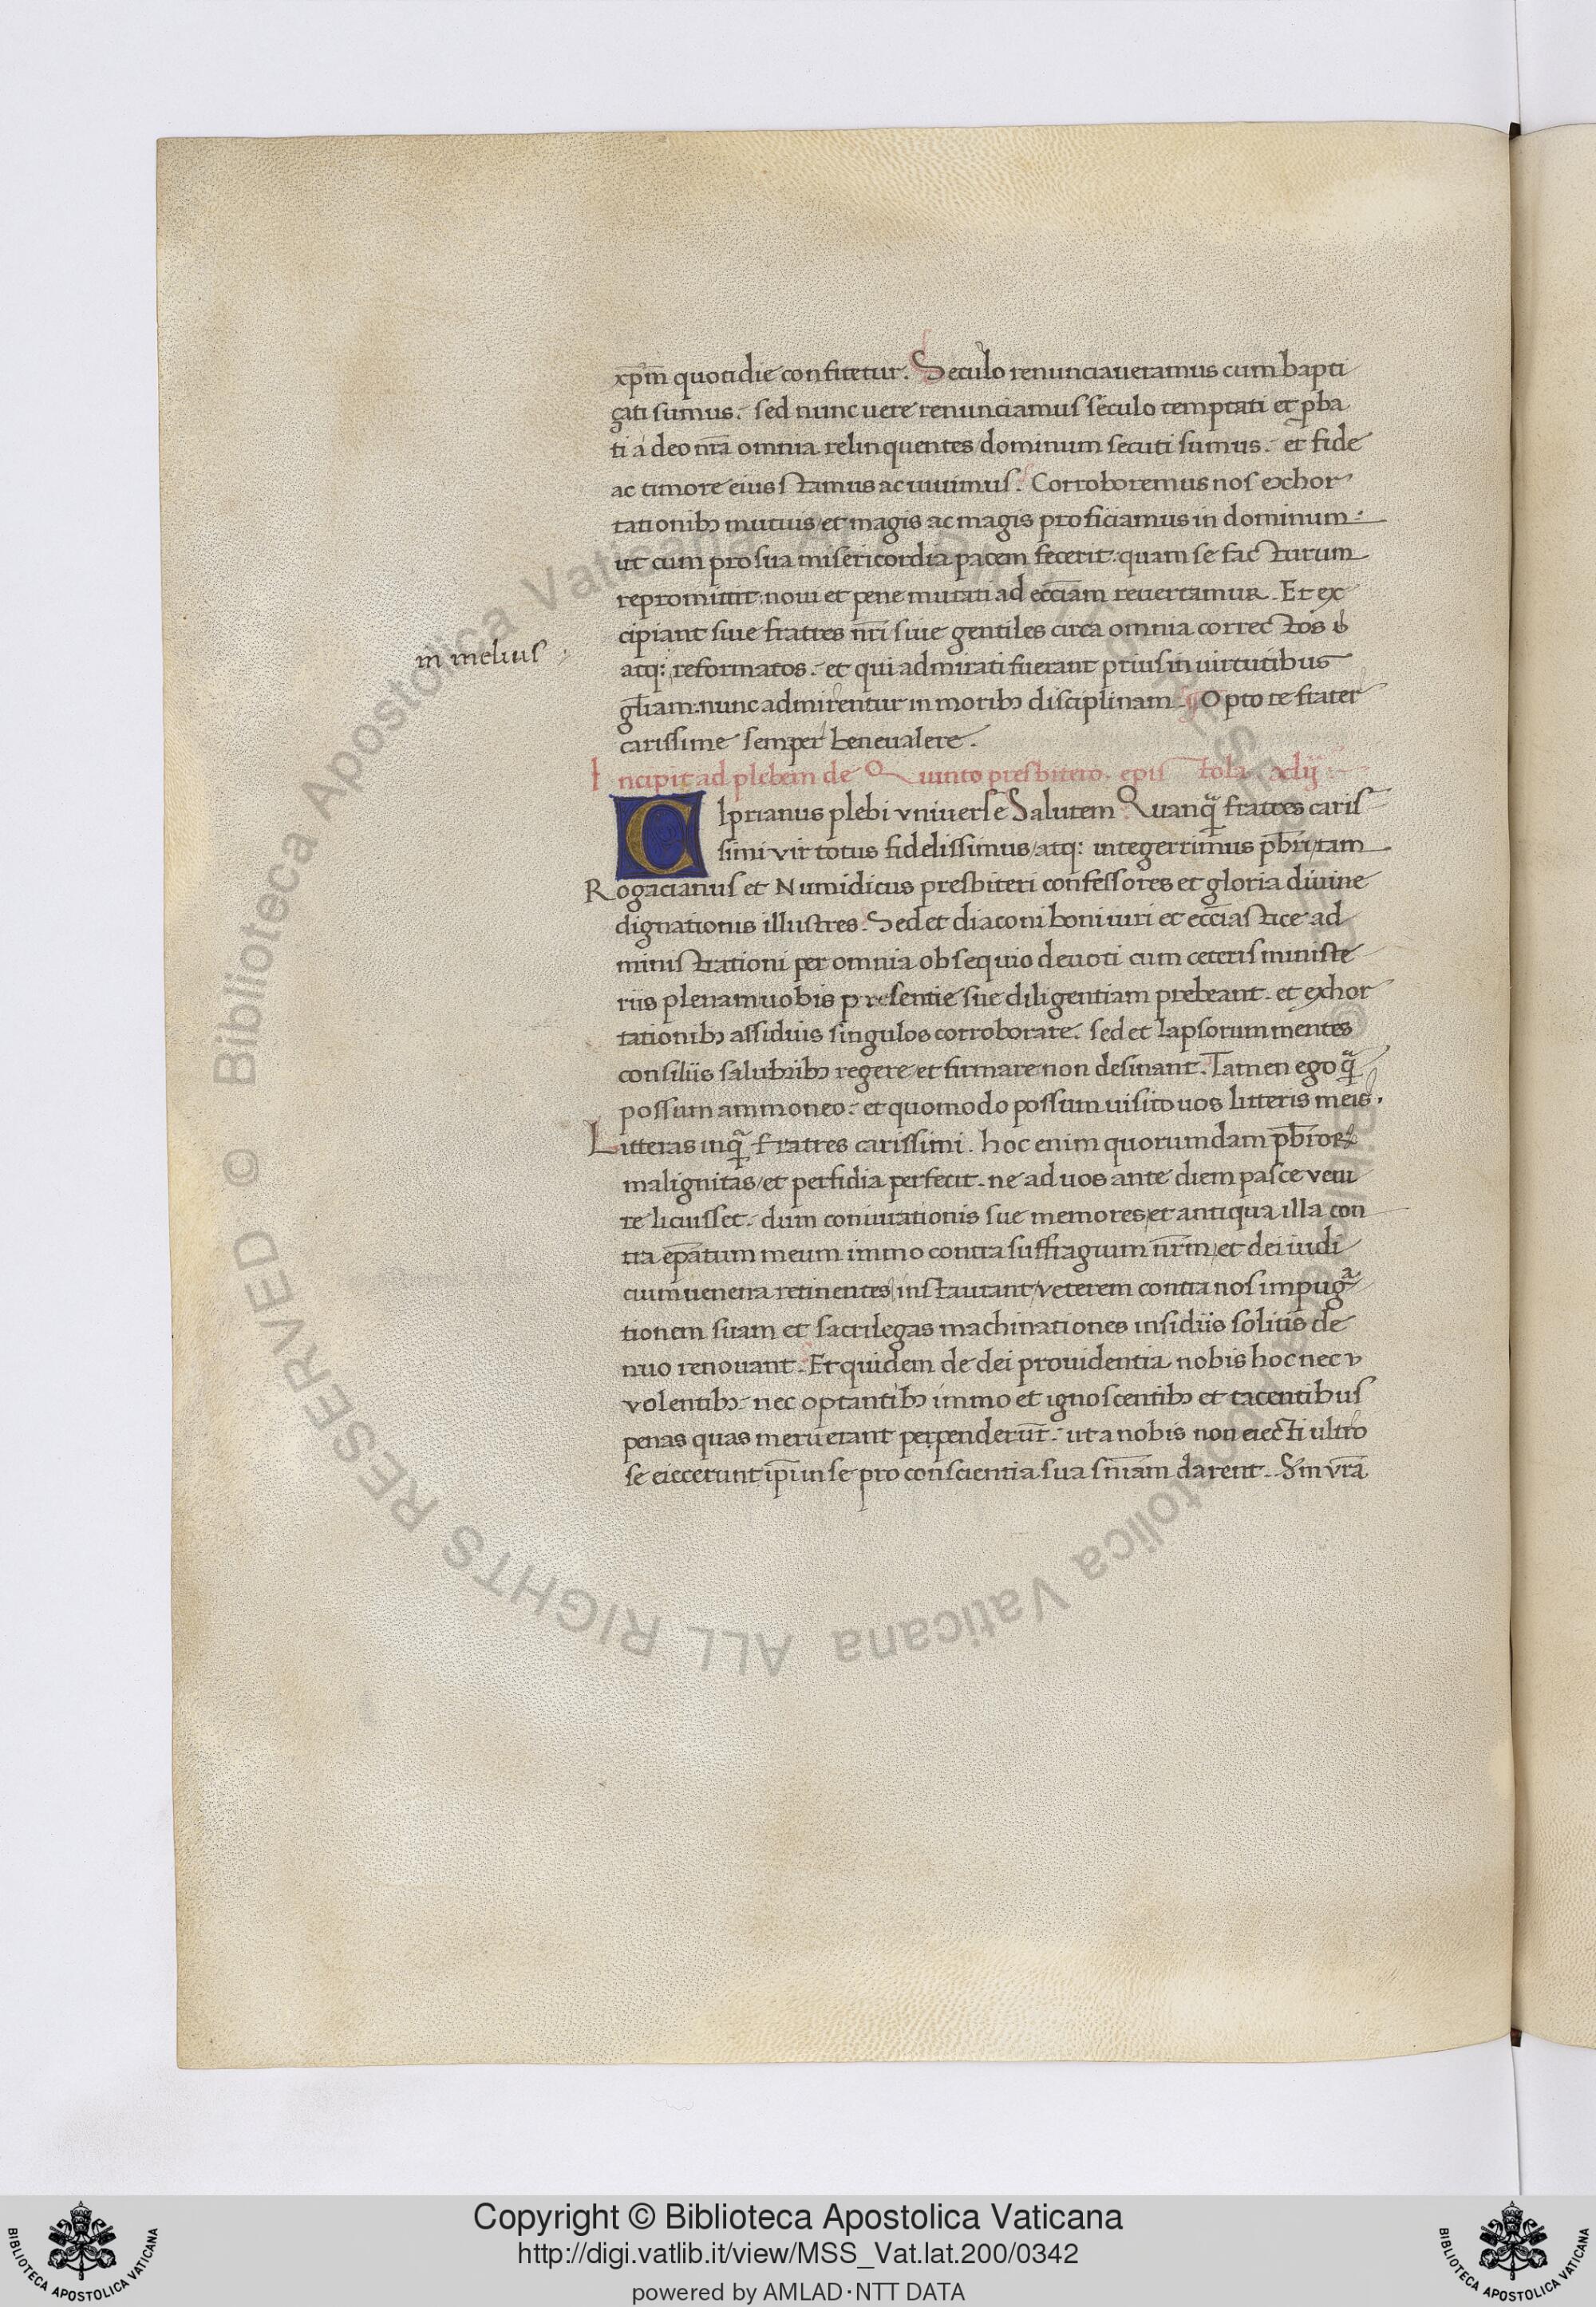 xp̄m quotidie confitetur. Seculo renunciaueramus cum bapti
çati sumus. sed nunc uere renunciamus seculo temptati et ꝓba
ti a deo nr̄a omnia relinquentes dominum secuti sumus. et fide
ac timore eius stamus ac uiuimus. Corroboremus nos exhor
tationibꝫ mutuis et magis ac magis proficiamus in dominum:
ut cum pro sua misericordia pacem fecerit: quam se facturum
repromittit: noui et pene mutati ad ecc̄iam reuertamur. Et ex
cipiant siue fratres nr̄i siue gentiles circa omnia correctos
in melius
atq: reformatos. et qui admirati fuerant prius in uirtutibus
gl̄iam: nunc admirentur in moribꝫ disciplinam. Opto te frater
carissime semper bene ualere.
Incipit ad plebem de Quinto presbitero. epistola. xliij
CIprianus plebi vniuerse Salutem Quanq̄ fratres caris
simi vir totus fidelissimus/atq: integerrimus pb̄ri/tam
Rogacianus et Numidicus presbiteri confessores et gloria diuine
dignationis illustres. Sed et diaconi boni uiri et ecc̄iastice ad
ministrationi per omnia obsequio deuoti cum ceteris ministe
riis plenam uobis presentie sue diligentiam prebeant. et exhor
tationibꝫ assiduis singulos corroborare. sed et lapsorum mentes
consiliis salubribꝫ regere et firmare non desinant. Tamen ego q̄
possum ammoneo. et quomodo possum uisito uos litteris meis.
Litteras inq̄ fratres carissimi. hoc enim quorumdam pb̄roꝝ
malignitas/et perfidia perfecit. ne ad uos ante diem pasce veni
re licuisset. dum coniurationis sue memores/et antiqua illa con
tra ep̄atum meum immo contra suffragium nr̄m/et dei iudi
cium uenena retinentes/instaurant/veterem contra nos impugᵃ
tionem suam et sacrilegas machinationes insidiis solitis de
nuo renouant. Et quidem de dei prouidentia nobis hoc nec v
volentibꝫ. nec optantibꝫ immo et ignoscentibꝫ et tacentibus
penas quas meruerant perpenderūt. ut a nobis non eiecti ultro
se eiecerunt ip̄i in se pro conscientia sua sn̄iam darent. Sm vr̄a
Copyright © Biblioteca Apostolica Vaticana
http://digi.vatlib.it/view/MSS_Vat.lat.200/0342
powered by AMLAD·NTT DATA